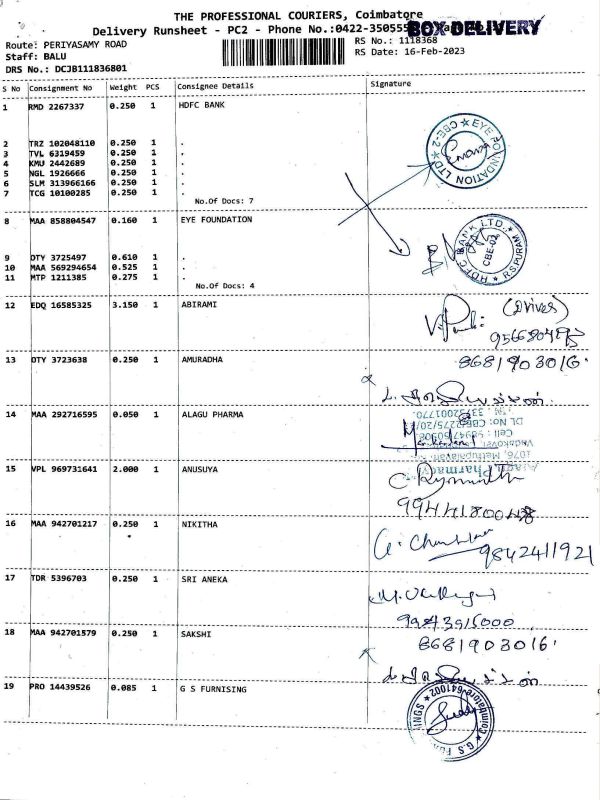 THE PROFESSIONAL COURIERS, Coimbatore
Delivery Runsheet - PC2 - Phone No.:0422-350555
BOX DELIVERY
Route: PERIYASAMY ROAD
RS No.: 1118368
Staff: BALU
RS Date: 16-Feb-2023
DRS No.: DCJB111836801
S No Consignment No Weight PCS Consignee Details Signature
1 RMD 2267337 0.250 1 HDFC BANK
2 TRZ 102048110 0.250 1 .
3 TVL 6319459 0.250 1 .
4 KMU 2442689 0.250 1 .
5 NGL 1926666 0.250 1 .
6 SLM 313966166 0.250 1 .
7 TCG 10100285 0.250 1 .
No.Of Docs: 7
EYE FOUNDATION LTD CBE-2
8 MAA 858804547 0.160 1 EYE FOUNDATION
9 OTY 3725497 0.610 1 .
10 MAA 569294654 0.525 1 .
11 MTP 1211385 0.275 1 .
No.Of Docs: 4
HDFC BANK LTD. R.S PURAM CBE-02
12 EDQ 16585325 3.150 1 ABIRAMI
(Driver)
13 OTY 3723638 0.250 1 AMURADHA
8681903016.
14 MAA 292716595 0.050 1 ALAGU PHARMA
Alagu Pharmacy
15 VPL 969731641 2.000 1 ANUSUYA
16 MAA 942701217 0.250 1 NIKITHA
9842411921
17 TDR 5396703 0.250 1 SRI ANEKA
9943915000
18 MAA 942701579 0.250 1 SAKSHI
8681903016.
19 PRO 14439526 0.085 1 G S FURNISING
Coimbatore-641002